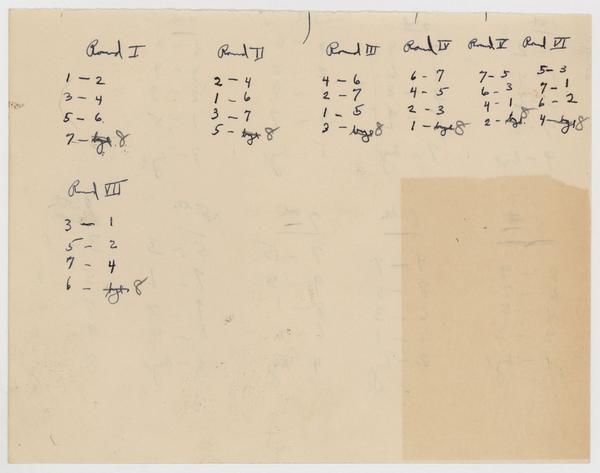 Round I
1 – 2
3 – 4
5 – 6
7 – bye 8
Round II
2 – 4
1 – 6
3 – 7
5 – bye 8
Round III
4 – 6
2 – 7
1 – 5
3 – bye 8
Round IV
6 – 7
4 – 5
2 – 3
1 – bye 8
Round V
7 – 5
6 – 3
4 – 1
2 – bye 8
Round VI
5 – 3
7 – 1
6 – 2
4 – bye 8
Round VII
3 – 1
5 – 2
7 – 4
6 – bye 8